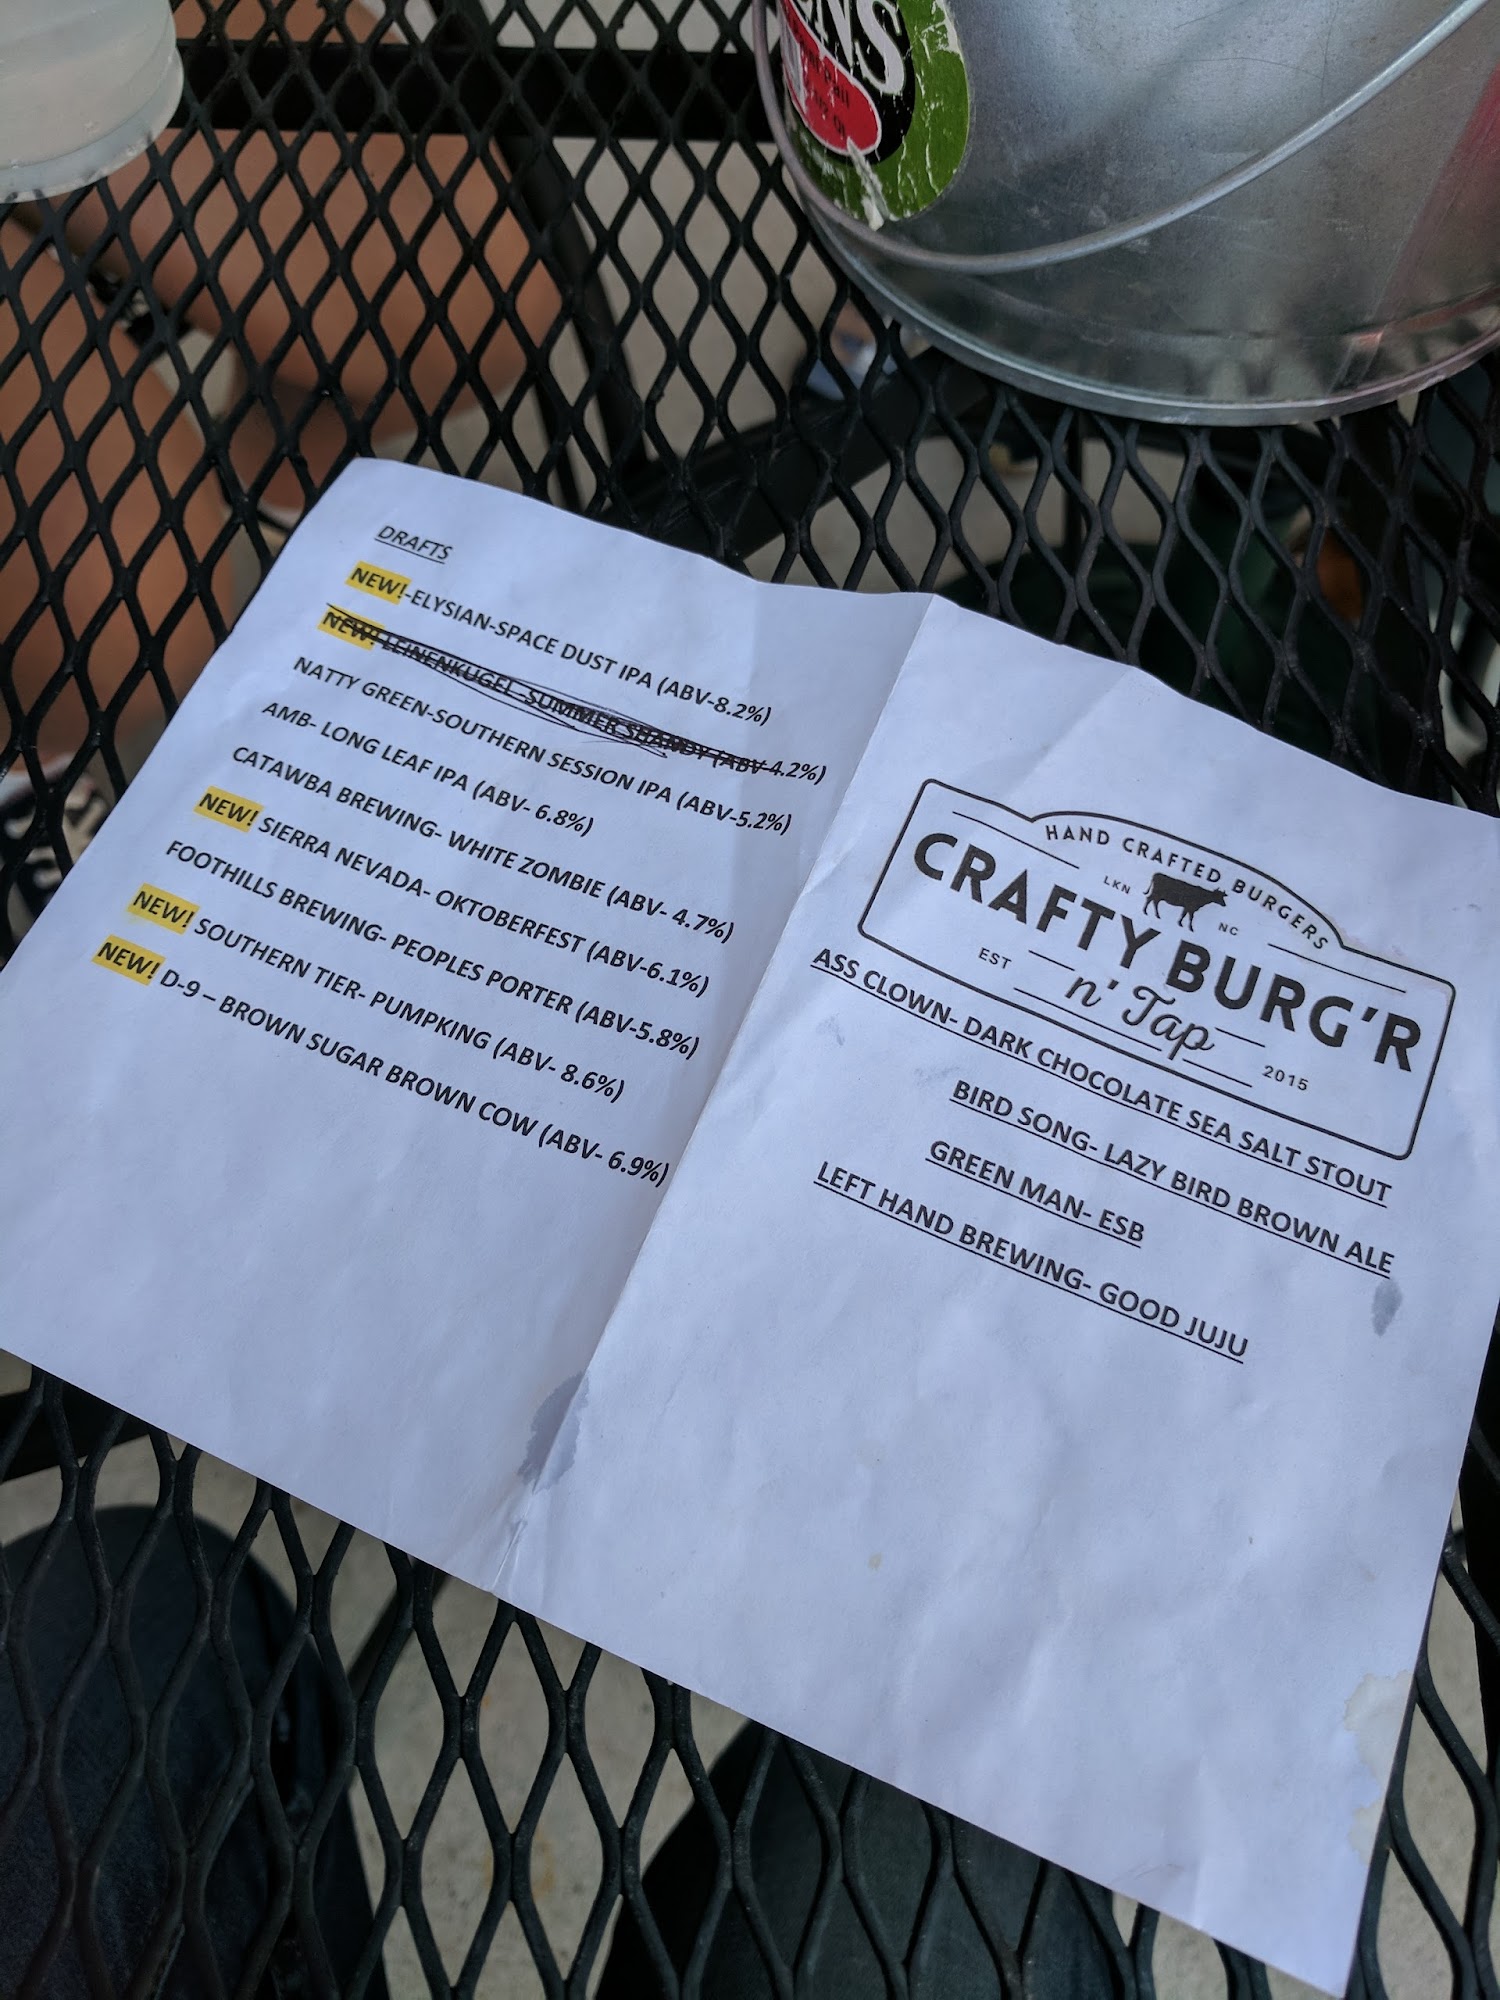 DRAFTS
NEW!-ELYSIAN-SPACE DUST IPA (ABV-8.2%)
NEW! LEINENKUGEL-SUMMER SHANDY (ABV-4.2%)
NATTY GREEN-SOUTHERN SESSION IPA (ABV-5.2%)
AMB- LONG LEAF IPA (ABV- 6.8%)
CATAWBA BREWING- WHITE ZOMBIE (ABV- 4.7%)
NEW! SIERRA NEVADA- OKTOBERFEST (ABV-6.1%)
FOOTHILLS BREWING- PEOPLES PORTER (ABV-5.8%)
NEW! SOUTHERN TIER- PUMPKING (ABV- 8.6%)
NEW! D-9 – BROWN SUGAR BROWN COW (ABV- 6.9%)
HAND CRAFTED BURGERS
LKN NC
CRAFTY BURG'R
EST n' Tap 2015
ASS CLOWN- DARK CHOCOLATE SEA SALT STOUT
BIRD SONG- LAZY BIRD BROWN ALE
GREEN MAN- ESB
LEFT HAND BREWING- GOOD JUJU